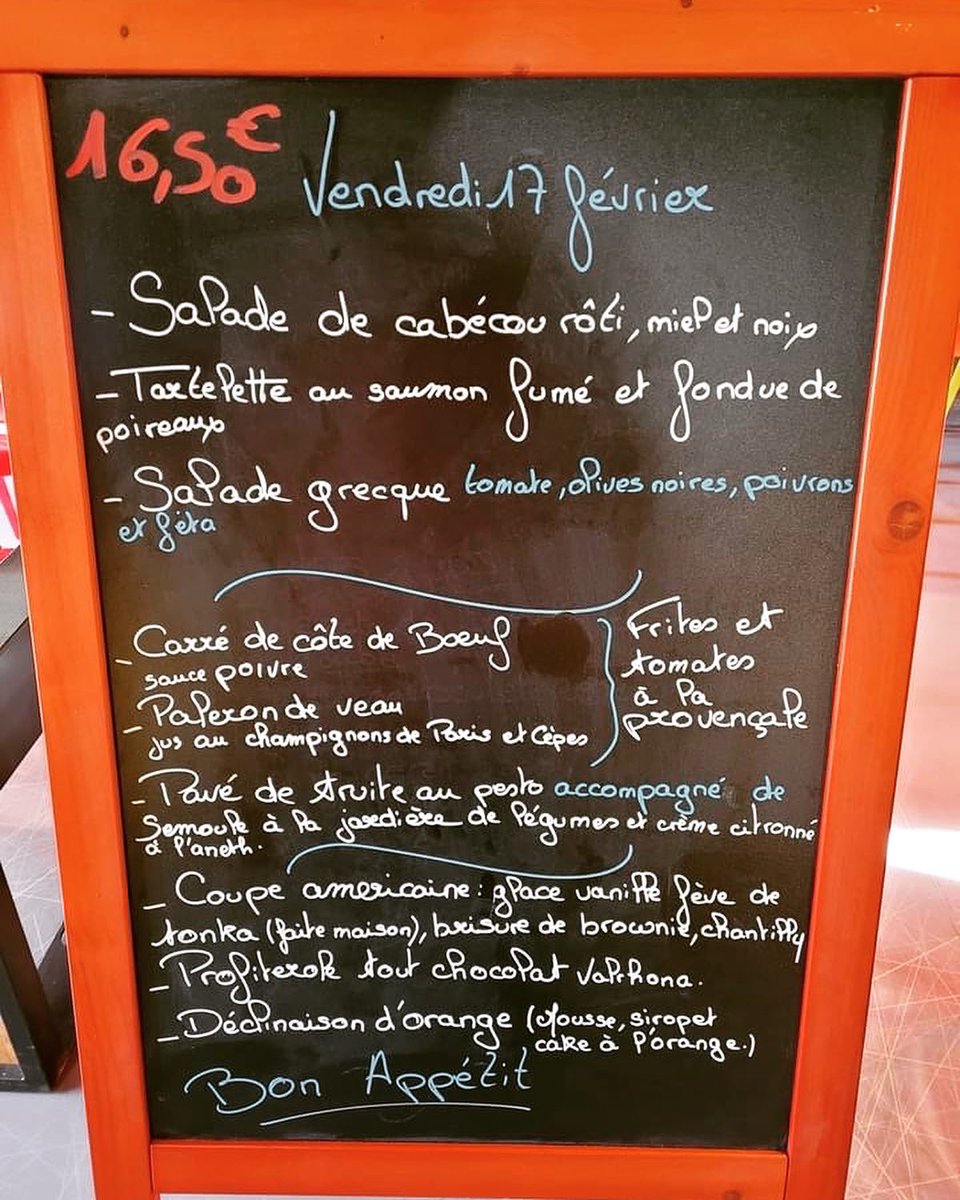 16,50€
Vendredi 17 février
- Salade de cabécou rôti, miel et noix
- Tartelette au saumon fumé et fondue de
poireaux
- Salade grecque tomate, olives noires, poivrons
et féta
- Carré de côte de Boeuf
sauce poivre
- Paleron de veau
jus au champignons de Paris et Cèpes
Frites et
tomates
à la
provençale
- Pavé de truite au pesto accompagné de
Semoule à la jardière de légumes et crème citronné
à l'aneth.
- Coupe americaine : glace vanille fève de
tonka (faite maison), brisure de brownie, chantilly
- Profiterole tout chocolat Valrhona.
- Déclinaison d'orange (Mousse, sirop et
cake à l'orange.)
Bon Appétit